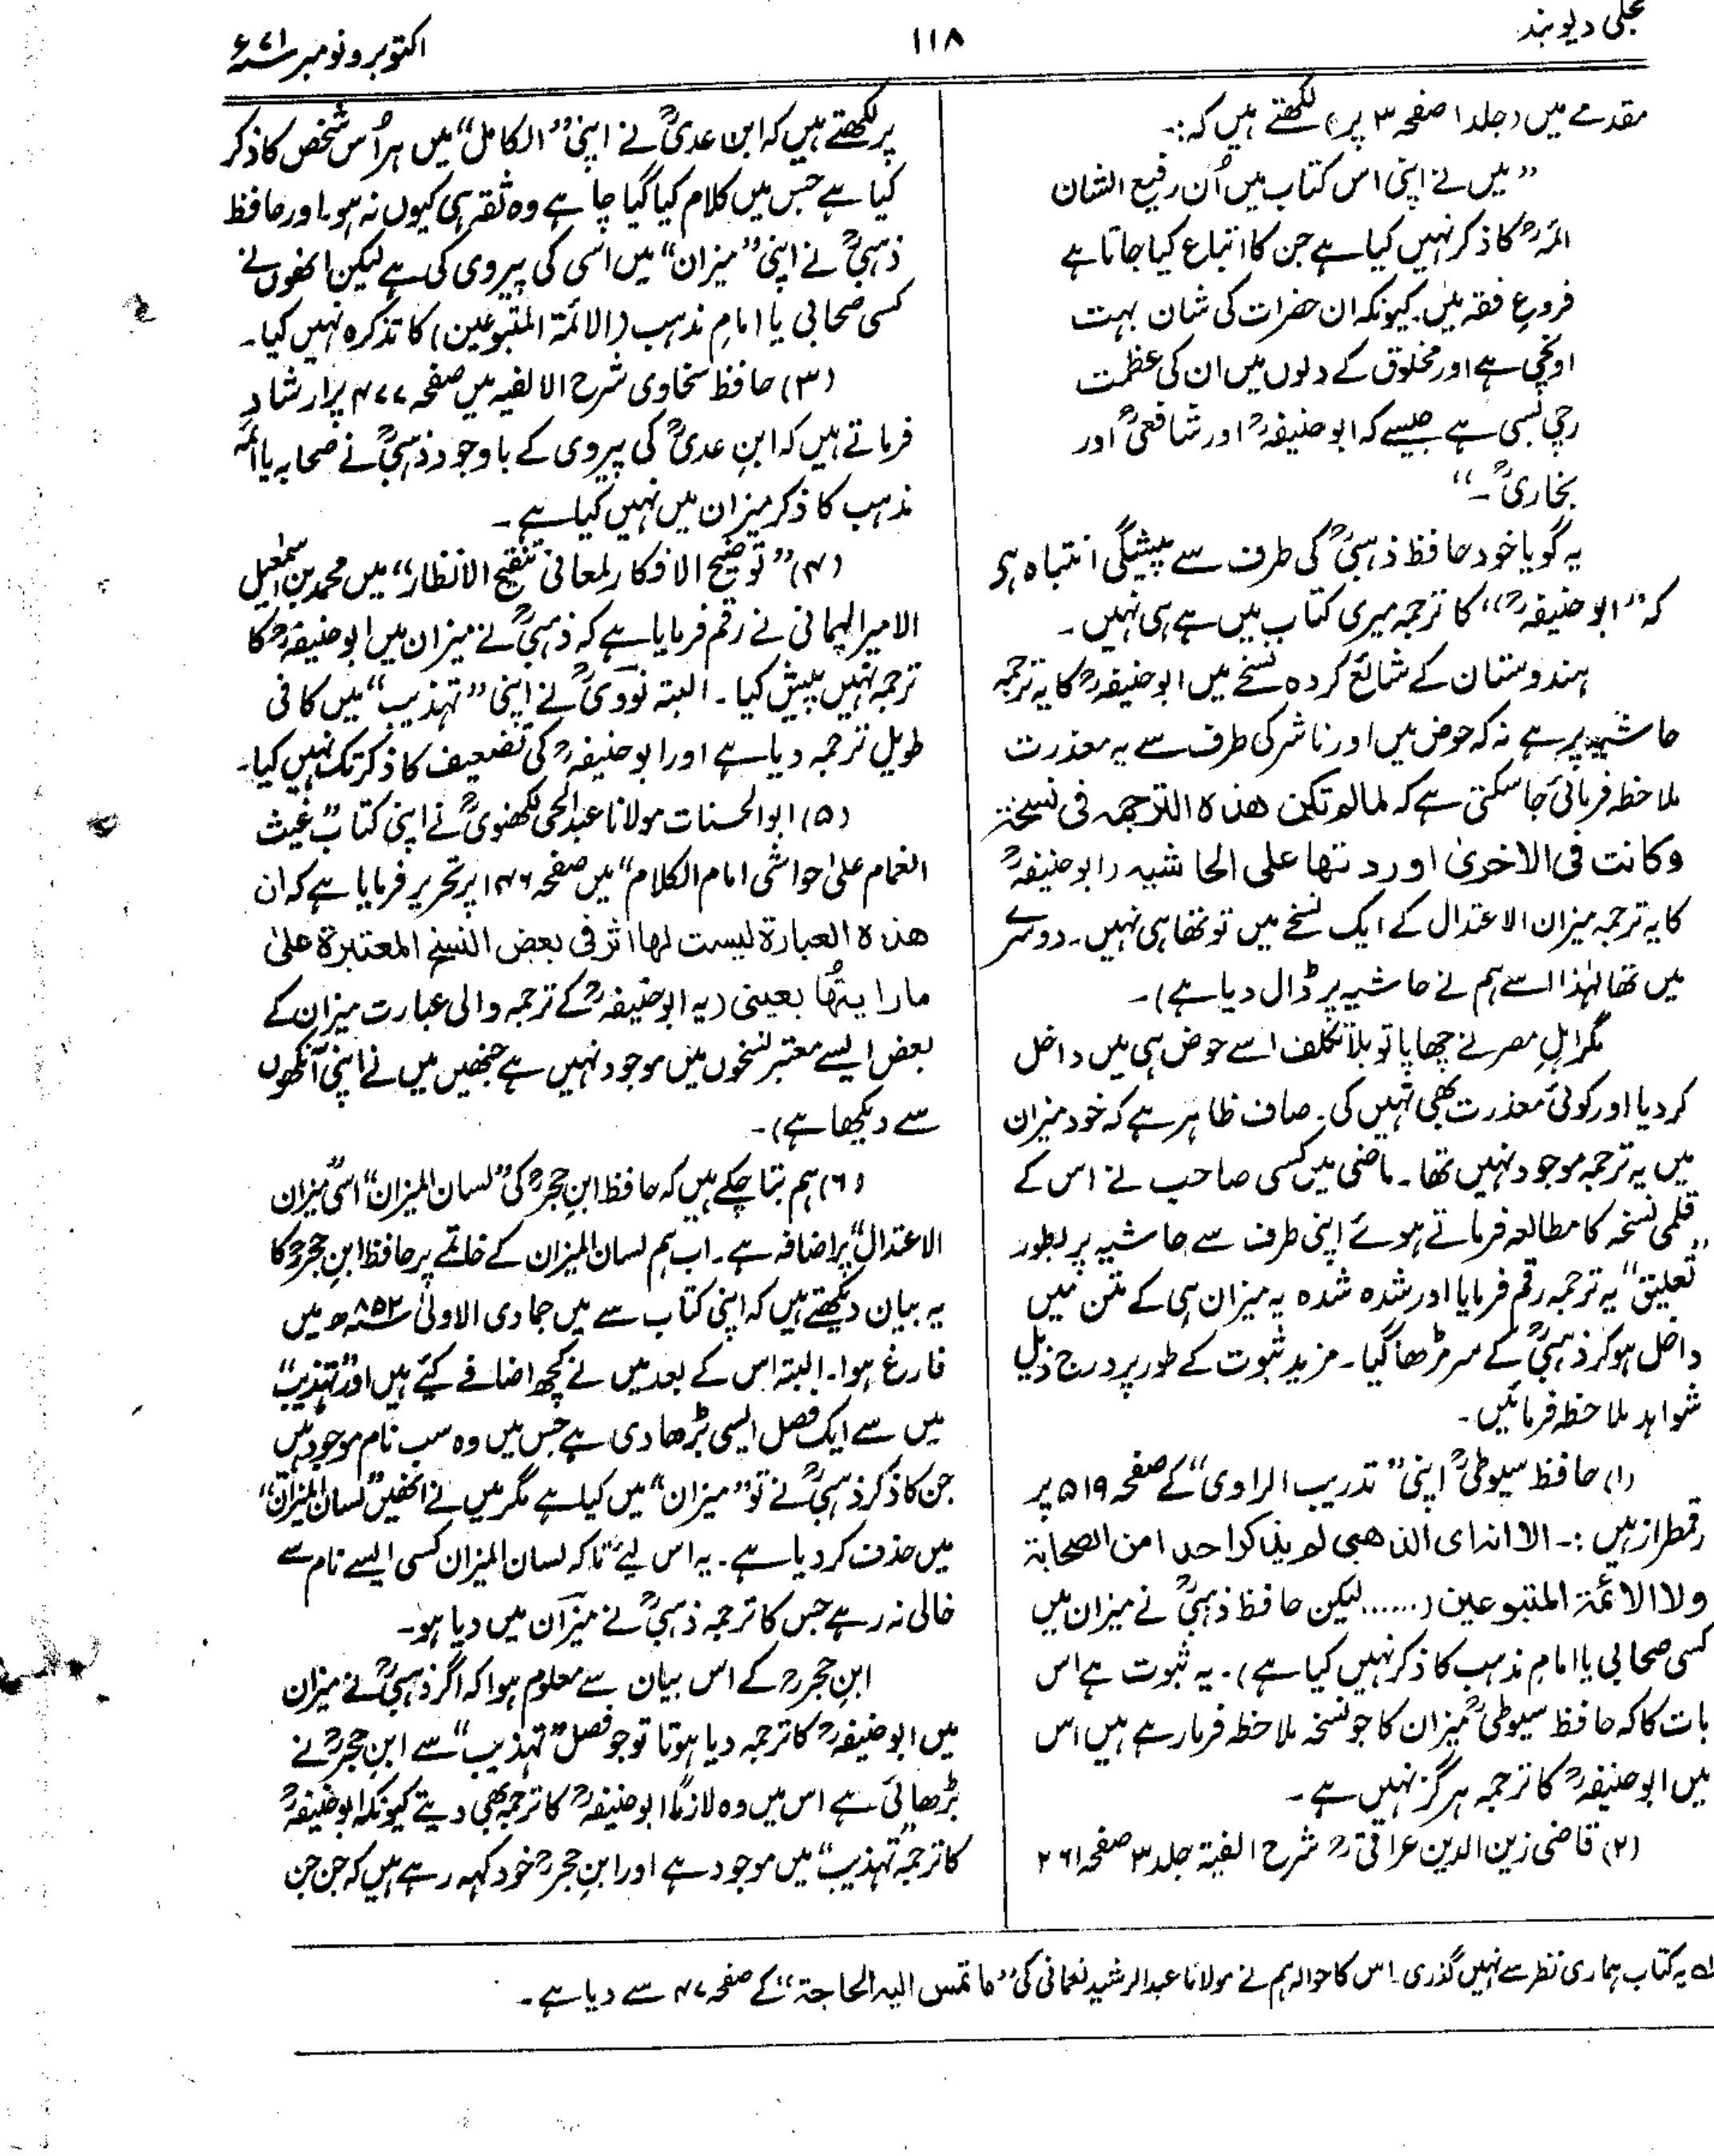 تجلی دیوبند
۱۱۸
اکتوبر و نومبر ۷۱ء
مقدمے میں (جلد ۱ صفحہ ۳ پر) لکھتے ہیں کہ:۔
”میں نے اپنی اس کتاب میں اُن رفیع الشان
ائمہؒ کا ذکر نہیں کیا ہے جن کا اتباع کیا جاتا ہے
فروعِ فقہ میں۔ کیونکہ ان حضرات کی شان بہت
اونچی ہے اور مخلوق کے دلوں میں ان کی عظمت
رچی بسی ہے جیسے کہ ابو حنیفہؒ اور شافعیؒ اور
بخاریؒ۔“
یہ گویا خود حافظ ذہبیؒ کی طرف سے پیشگی انتباہ ہے
کہ ”ابو حنیفہؒ“ کا ترجمہ میری کتاب میں ہے ہی نہیں۔
ہندوستان کے شائع کردہ نسخے میں ابو حنیفہؒ کا یہ ترجمہ
حاشیہ پر ہے نہ کہ حوض میں اور ناشر کی طرف سے یہ معذرت
ملاحظہ فرمائی جا سکتی ہے کہ لما لم تکن ھذہ الترجمہ فی نسخۃ
وکانت فی الاخریٰ اوردتھا علی الحاشیہ (ابو حنیفہؒ
کا یہ ترجمہ میزان الاعتدال کے ایک نسخے میں تو تھا ہی نہیں۔ دوسرے
میں تھا لہٰذا اسے ہم نے حاشیہ پر ڈال دیا ہے)۔
مگر اہلِ مصر نے چھاپا تو بلا تکلف اسے حوض ہی میں داخل
کر دیا اور کوئی معذرت بھی نہیں کی۔ صاف ظاہر ہے کہ خود میزان
میں یہ ترجمہ موجود نہیں تھا۔ ماضی میں کسی صاحب نے اس کے
قلمی نسخہ کا مطالعہ فرماتے ہوئے اپنی طرف سے حاشیہ پر بطور
”تعلیق“ یہ ترجمہ رقم فرمایا اور شدہ شدہ یہ میزان ہی کے متن میں
داخل ہو کر ذہبیؒ کے سر مڑھا گیا۔ مزید ثبوت کے طور پر درج ذیل
شواہد ملاحظہ فرمائیں۔
(۱) حافظ سیوطیؒ اپنی ”تدریب الراوی“ کے صفحہ ۵۱۹ پر
رقمطراز ہیں:۔ الا انہ ای الذھبی لم یذکر احدا من الصحابۃ
ولا الائمۃ المتبوعین (......لیکن حافظ ذہبیؒ نے میزان میں
کسی صحابی یا امامِ مذہب کا ذکر نہیں کیا ہے)۔ یہ ثبوت ہے اس
بات کا کہ حافظ سیوطیؒ میزان کا جو نسخہ ملاحظہ فرما رہے ہیں اس
میں ابو حنیفہؒ کا ترجمہ ہرگز نہیں ہے۔
(۲) قاضی زین الدین عراقیؒ شرح الفیۃ جلد ۳ صفحہ ۲۶۱
پر لکھتے ہیں کہ ابن عدیؒ نے اپنی ”الکامل“ میں ہر اُس شخص کا ذکر
کیا ہے جس میں کلام کیا گیا چاہے وہ ثقہ ہی کیوں نہ ہو۔ اور حافظ
ذہبیؒ نے اپنی ”میزان“ میں اسی کی پیروی کی ہے لیکن انھوں نے
کسی صحابی یا امامِ مذہب (الائمۃ المتبوعین) کا تذکرہ نہیں کیا۔
(۳) حافظ سخاوی شرح الالفیہ میں صفحہ ۴۷۷ پر ارشاد
فرماتے ہیں کہ ابنِ عدیؒ کی پیروی کے باوجود ذہبیؒ نے صحابہ یا ائمہ
مذہب کا ذکر میزان میں نہیں کیا ہے۔
(۴) ”توضیح الافکار لمعانی تنقیح الانظار“ میں محمد بن اسمٰعیل
الامیر الیمانی نے رقم فرمایا ہے کہ ذہبیؒ نے میزان میں ابو حنیفہؒ کا
ترجمہ نہیں پیش کیا۔ البتہ نوویؒ نے اپنی ”تہذیب“ میں کافی
طویل ترجمہ دیا ہے اور ابو حنیفہؒ کی تضعیف کا ذکر تک نہیں کیا۔
(۵) ابو الحسنات مولانا عبد الحی لکھنویؒ نے اپنی کتاب ”غیث
الغمام علیٰ حواشی امام الکلام“ میں صفحہ ۱۴۶ پر تحریر فرمایا ہے کہ ان
ھذہ العبارۃ لیست لھا اثر فی بعض النسخ المعتبرۃ علیٰ
ما رایتُھا یعنی (یہ ابو حنیفہؒ کے ترجمہ والی عبارت میزان کے
بعض ایسے معتبر نسخوں میں موجود نہیں ہے جنھیں میں نے اپنی آنکھوں
سے دیکھا ہے)۔
(۶) ہم بتا چکے ہیں کہ حافظ ابنِ حجرؒ کی ”لسان المیزان“ اسی ”میزان
الاعتدال“ پر اضافہ ہے۔ اب ہم لسان المیزان کے خاتمے پر حافظ ابنِ حجرؒ کا
یہ بیان دیکھتے ہیں کہ اپنی کتاب سے میں جمادی الاولیٰ ۸۵۲ھ میں
فارغ ہوا۔ البتہ اس کے بعد میں نے کچھ اضافے کئے ہیں اور ”تہذیب“
میں سے ایک فصل ایسی بڑھا دی ہے جس میں وہ سب نام موجود ہیں
جن کا ذکر ذہبیؒ نے تو ”میزان“ میں کیا ہے مگر میں نے انھیں ”لسان المیزان“
میں حذف کر دیا ہے۔ یہ اس لیے تاکہ لسان المیزان کسی ایسے نام سے
خالی نہ رہے جس کا ترجمہ ذہبیؒ نے میزان میں دیا ہو۔
ابنِ حجرؒ کے اس بیان سے معلوم ہوا کہ اگر ذہبیؒ نے میزان
میں ابو حنیفہؒ کا ترجمہ دیا ہوتا تو جو فصل ”تہذیب“ سے ابنِ حجرؒ نے
بڑھائی ہے اس میں وہ لازماً ابو حنیفہؒ کا ترجمہ بھی دیتے کیونکہ ابو حنیفہؒ
کا ترجمہ ”تہذیب“ میں موجود ہے اور ابنِ حجرؒ خود کہہ رہے ہیں کہ جن جن
لہ یہ کتاب ہماری نظر سے نہیں گذری۔ اس کا حوالہ ہم نے مولانا عبد الرشید نعمانی کی ”ما تمس الیہ الحاجۃ“ کے صفحہ ۴۷ سے دیا ہے۔